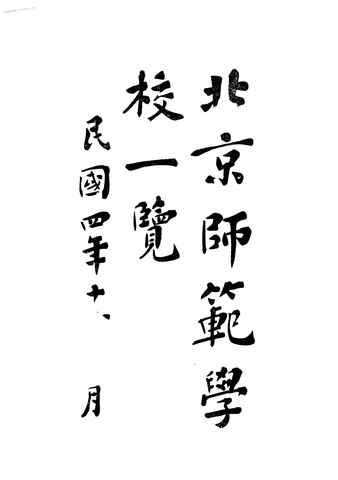 北京師範學
校一覽
民國四年十、
月